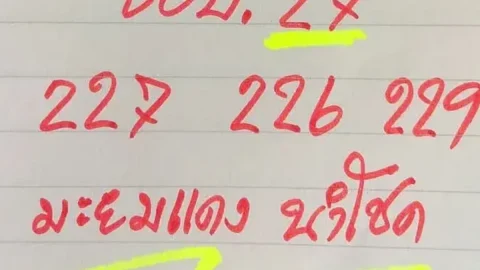 227 226 229
มะยมแดง นำโชค